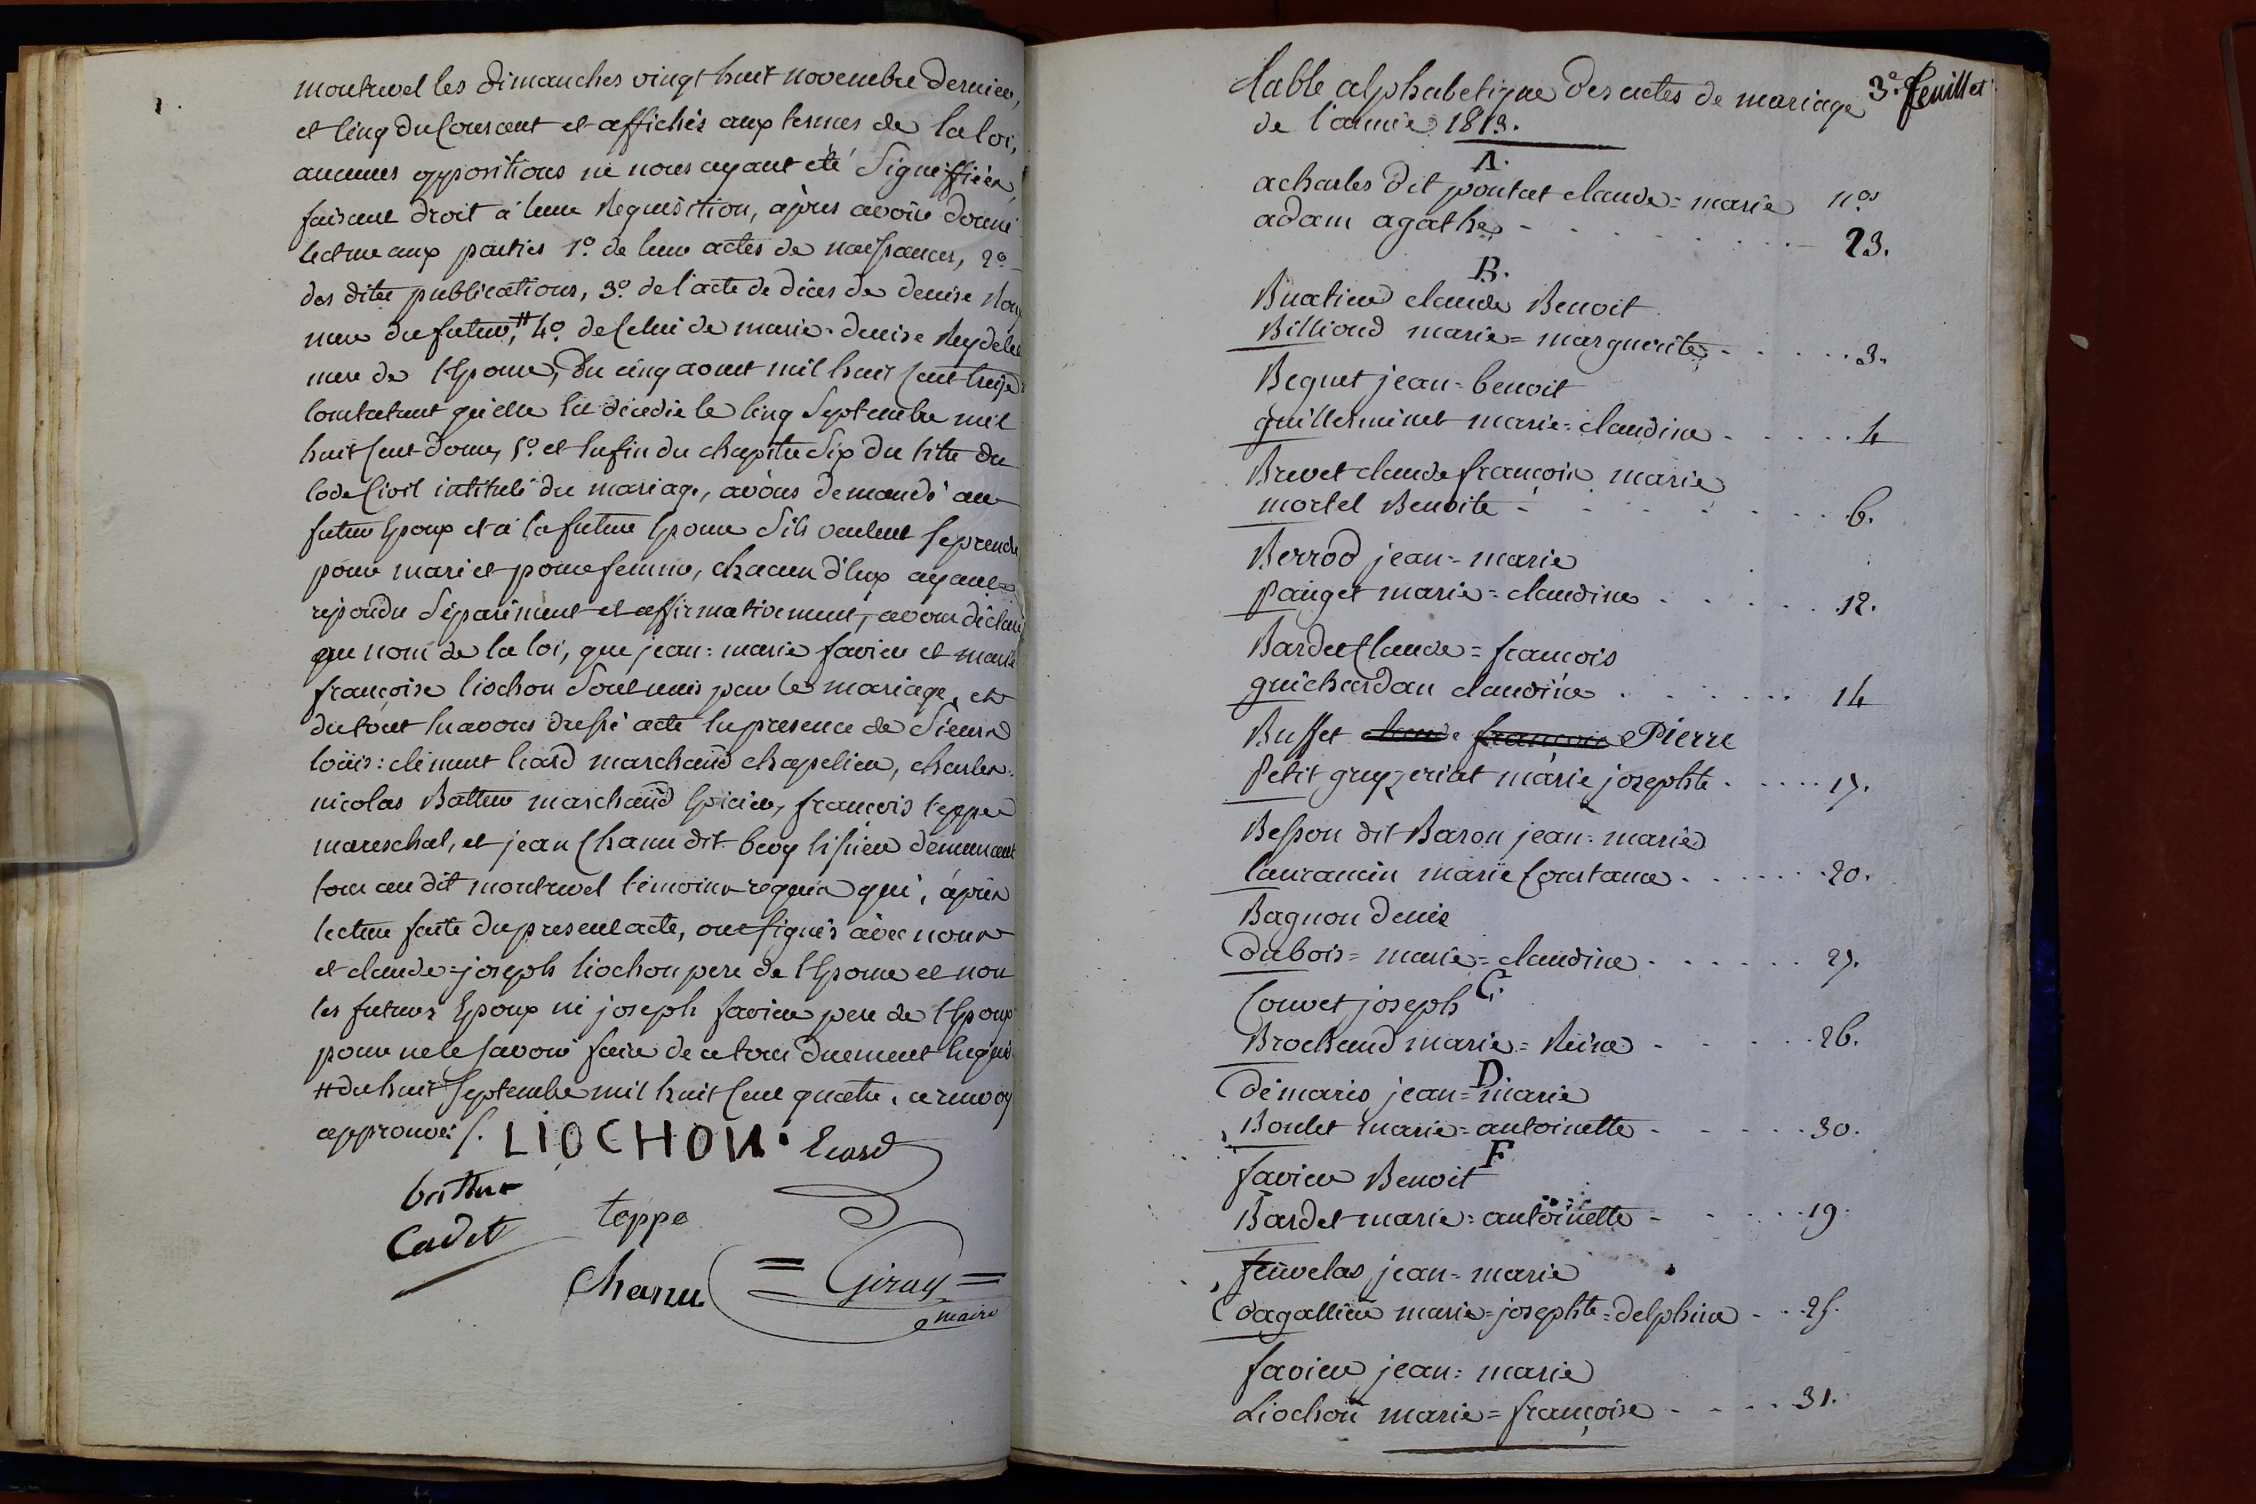 montrevel les dimanches vingt huit novembre dernier,
et cinq du courant et affichés aux termes de la loi,
aucunes oppositions ne nous ayant été Signiffiées,
faisant droit à leur Requisition, après avoir donné
lecture aux parties 1º. de leur actes de naissances, 2º.
des dites publications, 3º. de l'acte de dices de denise
mere du futur, # 4º. de Celui de marie-denise
mere de l'Epouse, Du cinq aout mil huit Cent treize
Constatant qu'elle Est dècedèe le Cinq Septembre mil
huit Cent douze, 5º. et Enfin du chapitre Six Du titre Du
Code Civil intitulé du mariage, avons demandé au
futur Epoux et à la future Epouse S'ils veulent se prendre
pour mari et pour femme, chacun d'Eux ayant
répondu Séparément et affirmativement, avons déclaré
au nom de la loi, que jean=marie favier et marie
françoise liochon Sont unis par le mariage, et
du tout En avons dressé acte En presence de Sieurs
loüis=clément liard marchand chapelier, charles=
nicolas Batteur marchand Epicier, françois teppe
mareschal, et jean Chanu dit tissier demeurant
tous au dit montrevel témoins requis qui, après
lecture faite du present acte, ont signés avec nous
et claude=joseph liochon pere de l'Epouse et non
les futurs Epoux ni joseph favier pere de l'Epoux
pour ne le savoir faire de ce tous duement Enquis
# du huit Septembre mil huit Cent quatre. ce renvoy
approuvé /. LIOCHON. Liard
Cadet teppe
Chanu = Giray =
maire
3e. feuillet
table alphabetique Des actes de mariage
de l'année 1813.
A.
acharles Dit pontat claude=marie nos
adam agathe - - - 23.
B.
Buatier claude Benoit
Billioud marie=marguerite - - - 3.
Beguet jean=benoit
guillerminet marie=claudine - - - 4
Brevet claude françois marie
mortel Benoite - - - 6.
Berrod jean=marie
pauget marie=claudine - - - 12.
Bardet Claude=francois
guichardan claudine - - - 14
Buffet claude françois Pierre
Petit gruyzeriat marie josephte - - - 17.
Besson dit Baron jean=marie
laurancin marie Constance - - - 20.
Bagnon denis
Dubois=marie=claudine - - - 27.
C.
Convet joseph
Brochand marie=Reine - - - 26.
D
Démaris jean=marie
Boulet marie=antoinette - - - 30.
F
favier Benoit
Bardet marie=antoinette - - - 19.
feuvelas jean=marie
Dagallier marie=josephte=delphine - - 25.
favier jean=marie
Liochon marie=françoise - - - 31.